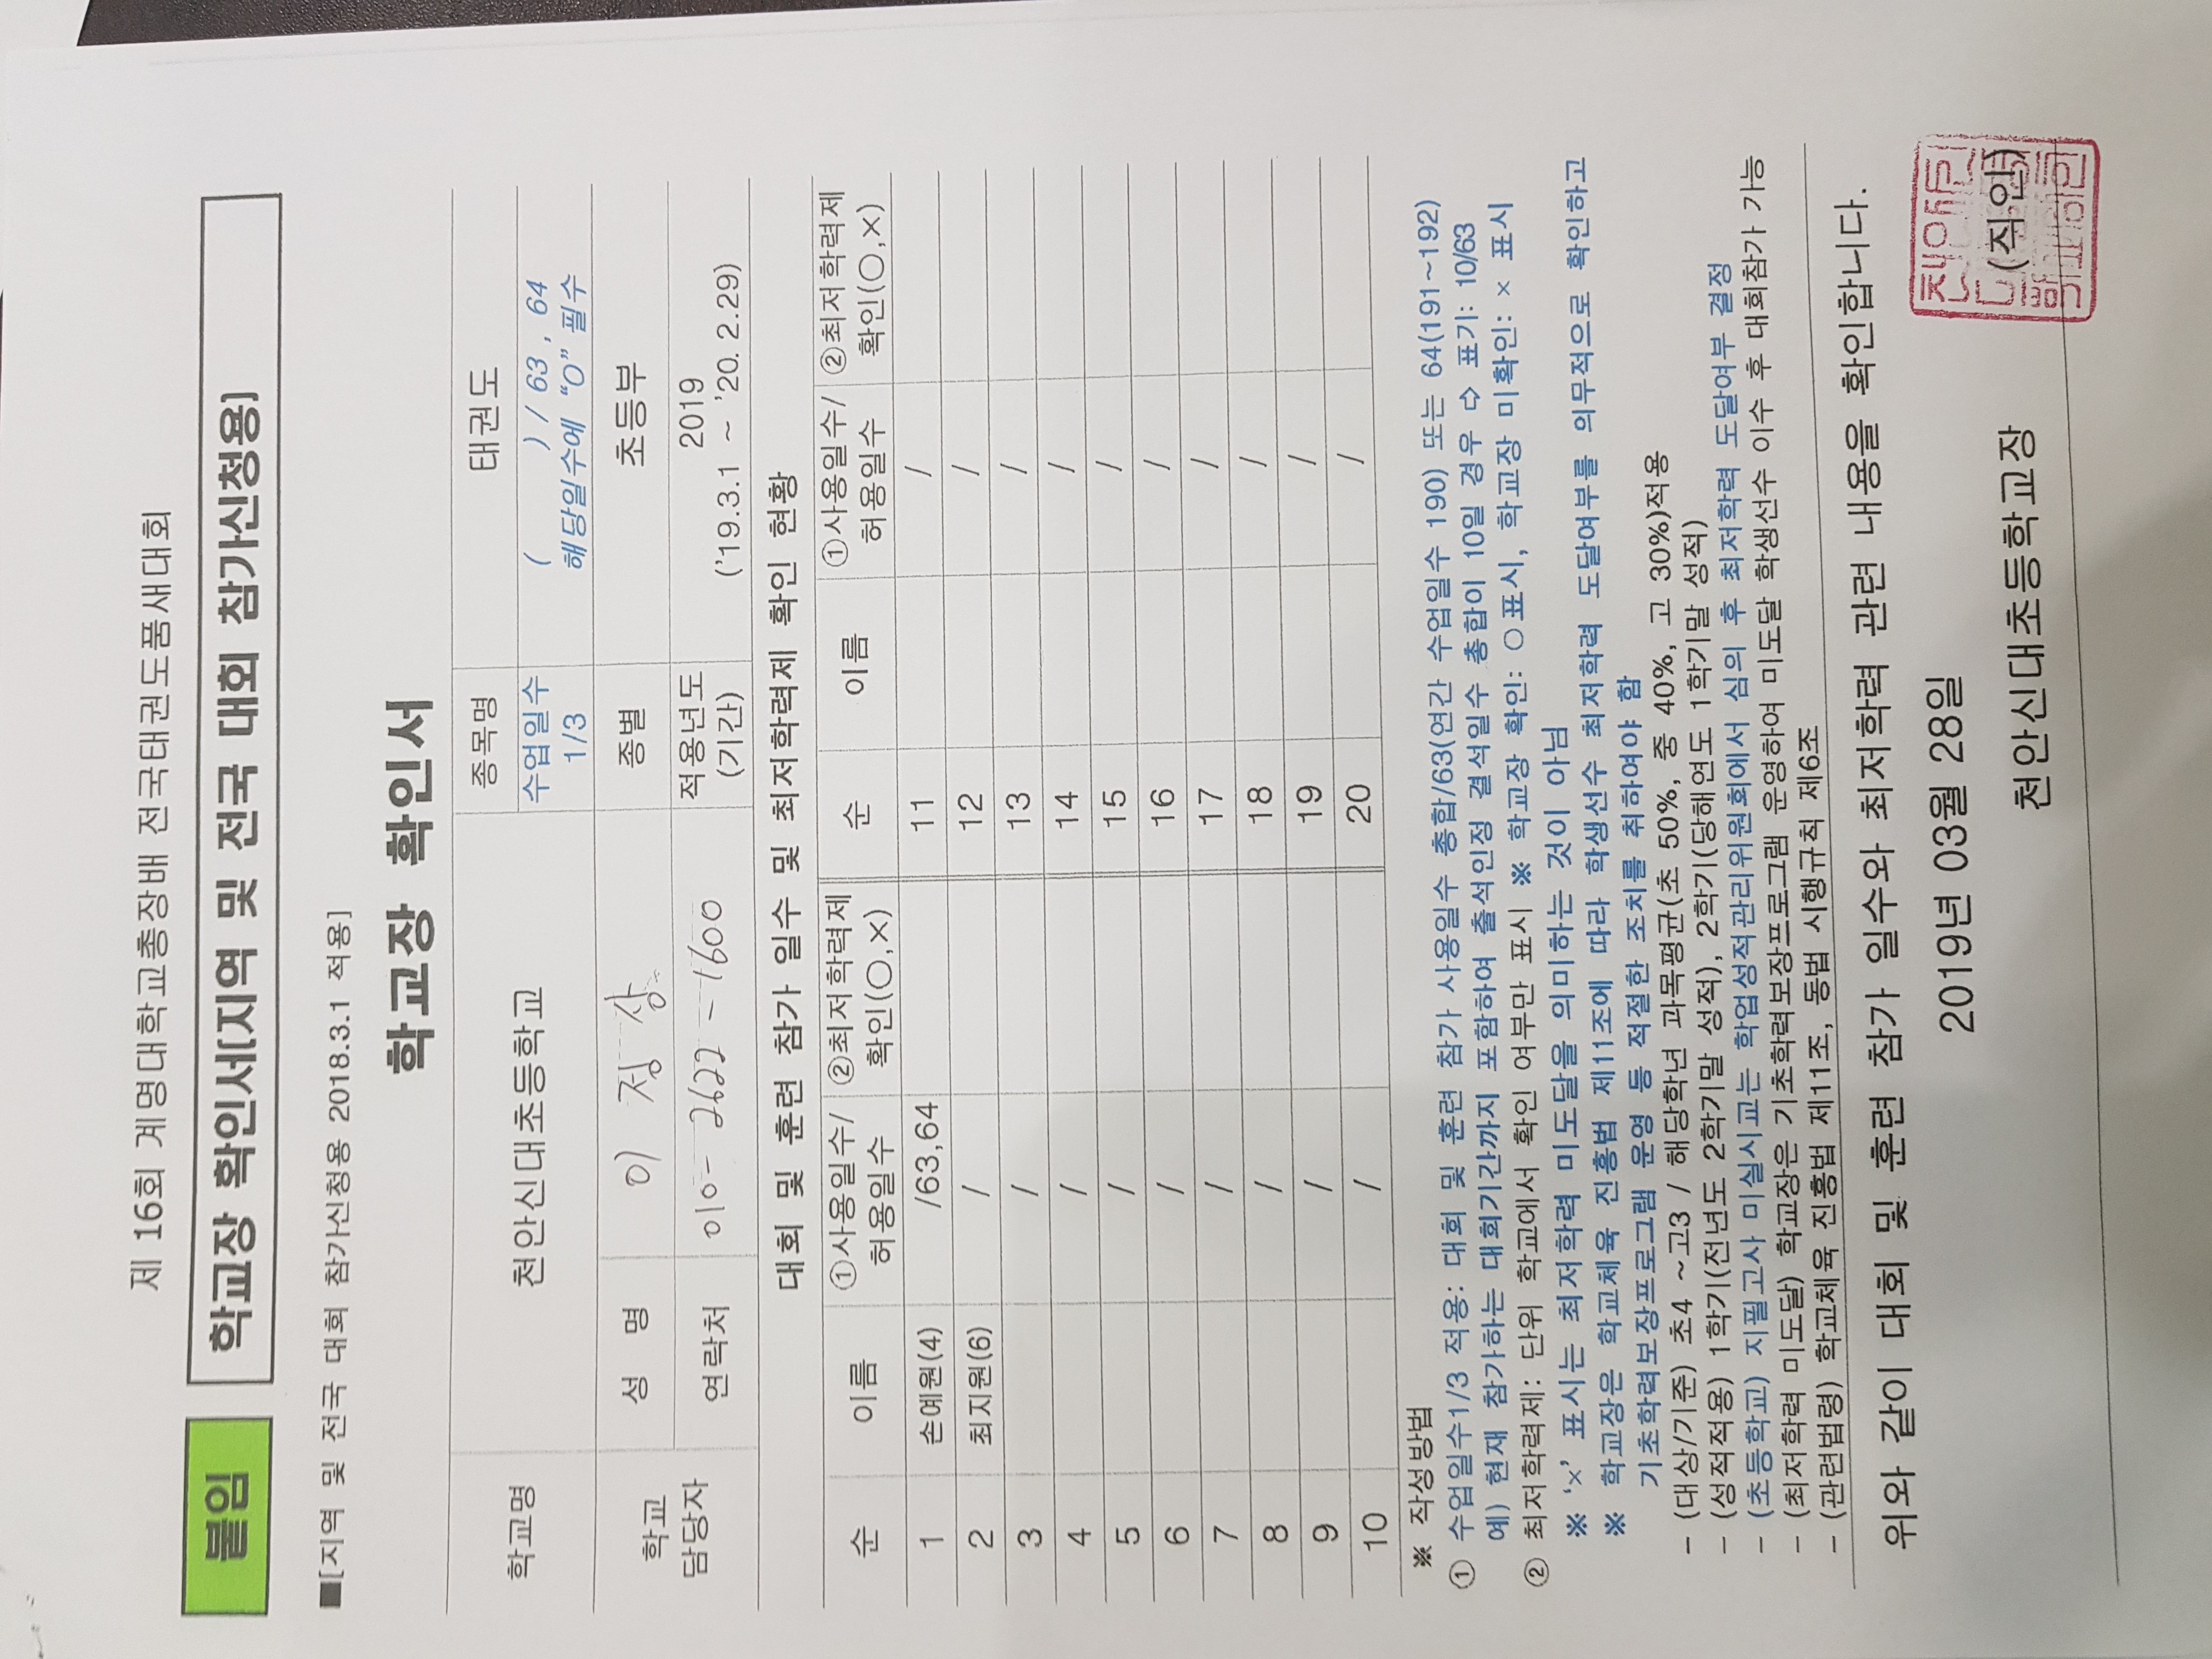 제 16회 계명대학교총장배 전국태권도품새대회
붙임 학교장 확인서(지역 및 전국 대회 참가신청용)
■[지역 및 전국 대회 참가신청용 2018.3.1 적용]
학교장 확인서
학교명 천안신대초등학교 종목명 태권도
수업일수 1/3 ( ) / 63 , 64
해당일수에 "O" 필수
학교 담당자 성 명 이 정 상 종별 초등부
연락처 010-2622-1600 적용년도 (기간) 2019
('19.3.1 ~ '20. 2.29)
대회 및 훈련 참가 일수 및 최저학력제 확인 현황
순 이름 ①사용일수/ 허용일수 ②최저학력제 확인(○,×) 순 이름 ①사용일수/ 허용일수 ②최저학력제 확인(○,×)
1 손예원(4) /63,64 11 /
2 최지원(6) / 12 /
3 / 13 /
4 / 14 /
5 / 15 /
6 / 16 /
7 / 17 /
8 / 18 /
9 / 19 /
10 / 20 /
※ 작성방법
① 수업일수1/3 적용: 대회 및 훈련 참가 사용일수 총합/63(연간 수업일수 190) 또는 64(191~192)
예) 현재 참가하는 대회기간까지 포함하여 출석인정 결석일수 총합이 10일 경우 ⇨ 표기: 10/63
② 최저학력제: 단위 학교에서 확인 여부만 표시 ※ 학교장 확인: ○표시, 학교장 미확인: × 표시
※ '×' 표시는 최저학력 미도달을 의미하는 것이 아님
※ 학교장은 학교체육 진흥법 제11조에 따라 학생선수 최저학력 도달여부를 의무적으로 확인하고
기초학력보장프로그램 운영 등 적절한 조치를 취하여야 함
- (대상/기준) 초4 ~고3 / 해당학년 과목평균(초 50%, 중 40%, 고 30%)적용
- (성적적용) 1학기(전년도 2학기말 성적), 2학기(당해연도 1학기말 성적)
- (초등학교) 지필고사 미실시교는 학업성적관리위원회에서 심의 후 최저학력 도달여부 결정
- (최저학력 미도달) 학교장은 기초학력보장프로그램 운영하여 미도달 학생선수 이수 후 대회참가 가능
- (관련법령) 학교체육 진흥법 제11조, 동법 시행규칙 제6조
위와 같이 대회 및 훈련 참가 일수와 최저학력 관련 내용을 확인합니다.
2019년 03월 28일
천안신대초등학교장 (직인)